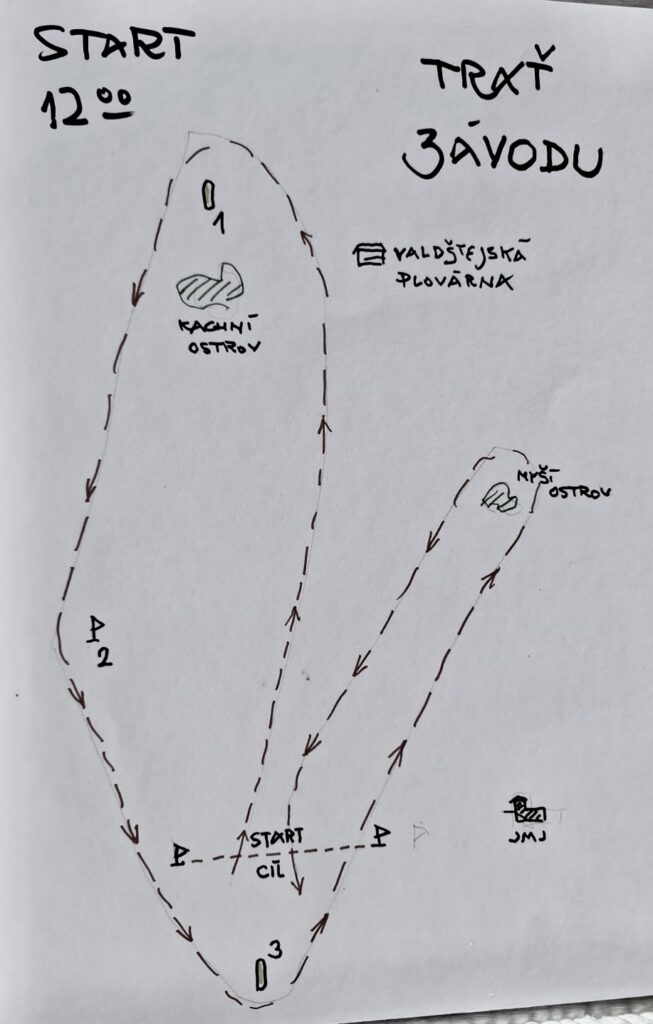 START
12⁰⁰
TRAŤ
ZÁVODU
1
VALDŠTEJSKÁ
PLOVÁRNA
KACHNÍ
OSTROV
MYŠÍ
OSTROV
P
2
START
P
P
P
CÍL
JMJ
3